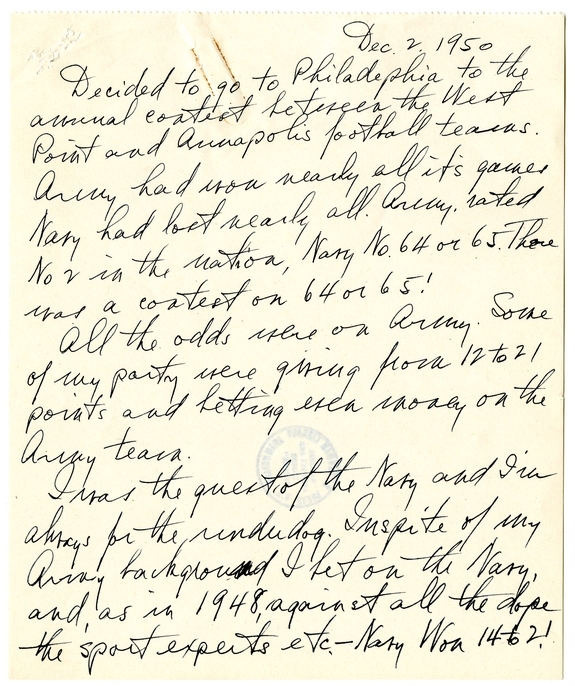 Dec. 2, 1950
Decided to go to Philadephia to the
annual contest between the West
Point and Annapolis football teams.
Army had won nearly all it's games
Navy had lost nearly all. Army, rated
No 2 in the nation, Navy No. 64 or 65. There
was a contest on 64 or 65!
All the odds were on Army. Some
of my party were giving from 12 to 21
points and betting even money on the
Army team.
I was the guest of the Navy and I'm
always for the underdog. Inspite of my
Army background I bet on the Navy,
and, as in 1948, against all the dope
the sport experts etc.—Navy Won 14 to 2!